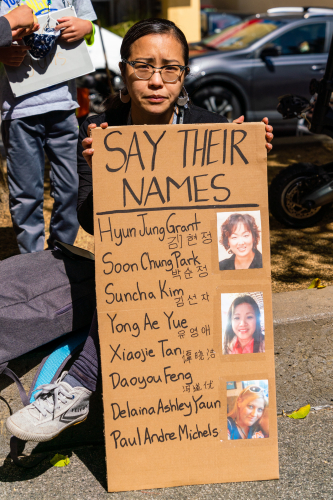 SAY THEIR
NAMES
Hyun Jung Grant
김현정
Soon Chung Park
박순정
Suncha Kim
김선자
Yong Ae Yue
유영애
Xiaojie Tan 譚曉洁
Daoyou Feng
冯道优
Delaina Ashley Yaun
Paul Andre Michels